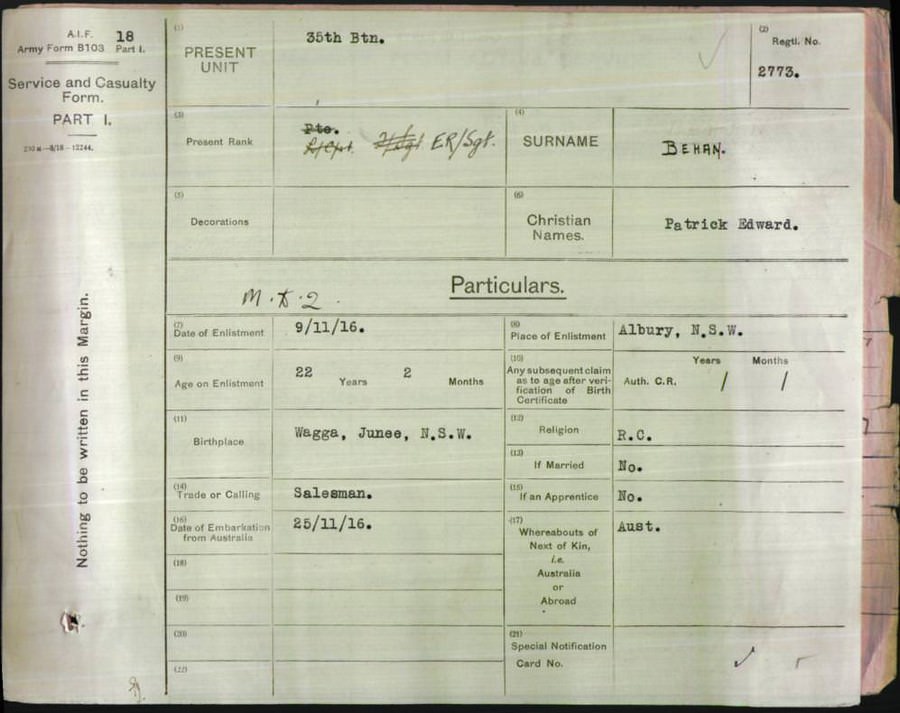 A.I.F. 18
Army Form B103 Part I.
Service and Casualty
Form.
PART I.
Nothing to be written in this Margin.
(1)
PRESENT
UNIT
35th Btn.
(2)
Regtl. No.
2773.
(3)
Present Rank
Pte.
ER/Sgt.
(4)
SURNAME
BEHAN.
(5)
Decorations
(6)
Christian
Names.
Patrick Edward.
Particulars.
(7)
Date of Enlistment
9/11/16.
(8)
Place of Enlistment
Albury, N.S.W.
(9)
Age on Enlistment
22 Years 2 Months
(10)
Any subsequent claim
as to age after veri-
fication of Birth
Certificate
Auth. C.R. Years / Months /
(11)
Birthplace
Wagga, Junee, N.S.W.
(12)
Religion
R.C.
(13)
If Married
No.
(14)
Trade or Calling
Salesman.
(15)
If an Apprentice
No.
(16)
Date of Embarkation
from Australia
25/11/16.
(17)
Whereabouts of
Next of Kin,
i.e.
Australia
or
Abroad
Aust.
(18)
(19)
(20)
(21)
Special Notification
Card No.
(22)